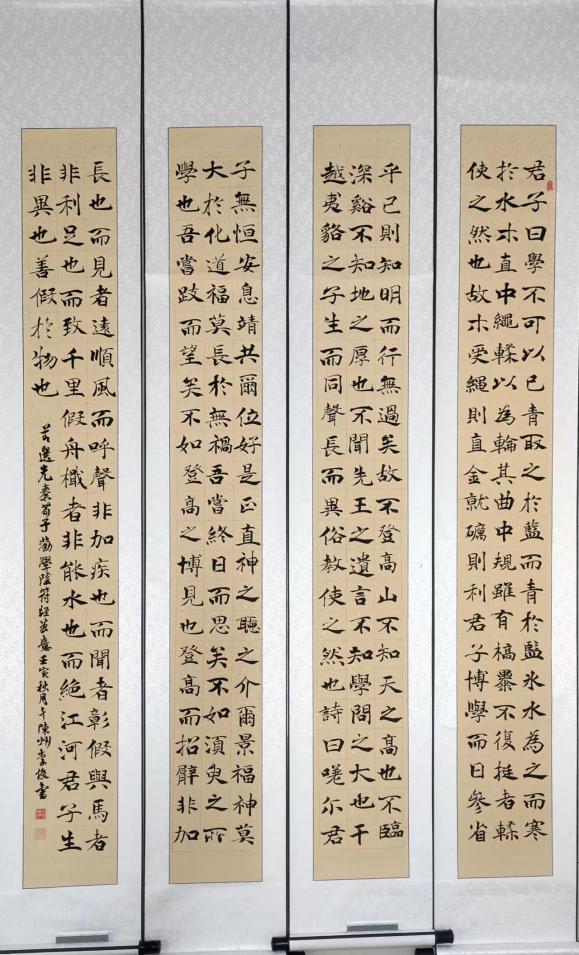 君子曰學不可以已青取之於藍而青於藍氷水為之而寒
於水木直中繩輮以為輪其曲中規雖有槁暴不復挺者輮
使之然也故木受繩則直金就礪則利君子博學而日參省
乎己則知明而行無過矣故不登高山不知天之高也不臨
深谿不知地之厚也不聞先王之遺言不知學問之大也干
越夷貉之子生而同聲長而異俗教使之然也詩曰嗟尔君
子無恒安息靖共爾位好是正直神之聽之介爾景福神莫
大於化道福莫長於無禍吾嘗終日而思矣不如須臾之所
學也吾嘗跂而望矣不如登高之博見也登高而招臂非加
長也而見者遠順風而呼聲非加疾也而聞者彰假輿馬者
非利足也而致千里假舟檝者非能水也而絕江河君子生
非異也善假於物也
节選先秦荀子勸學陰符經筆意壬寅秋月于陳州李俊書